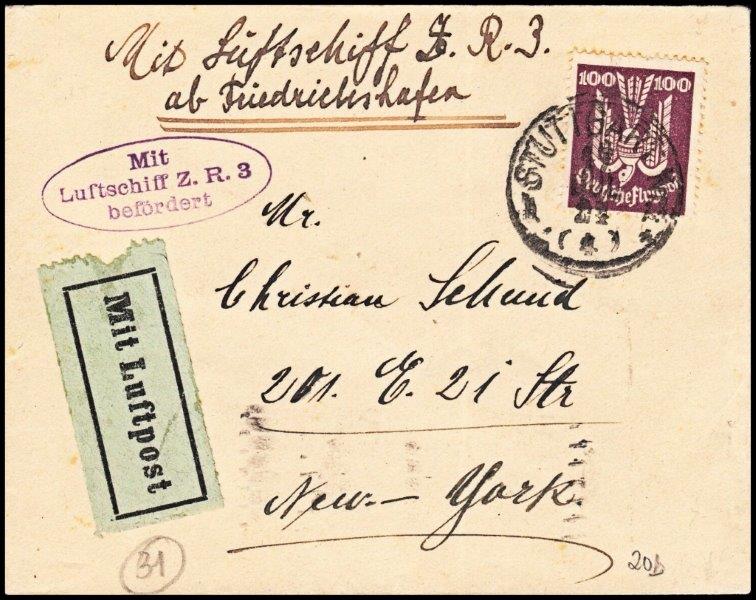 Mit Luftschiff Z. R. 3.
ab Friedrichshafen
100 100
Deutsche Flugpost
STUTTGART
24
Mit
Luftschiff Z. R. 3
befördert
Mr.
Christian Schmid
201. E. 21 Str
New-York
Mit Luftpost
31
20D